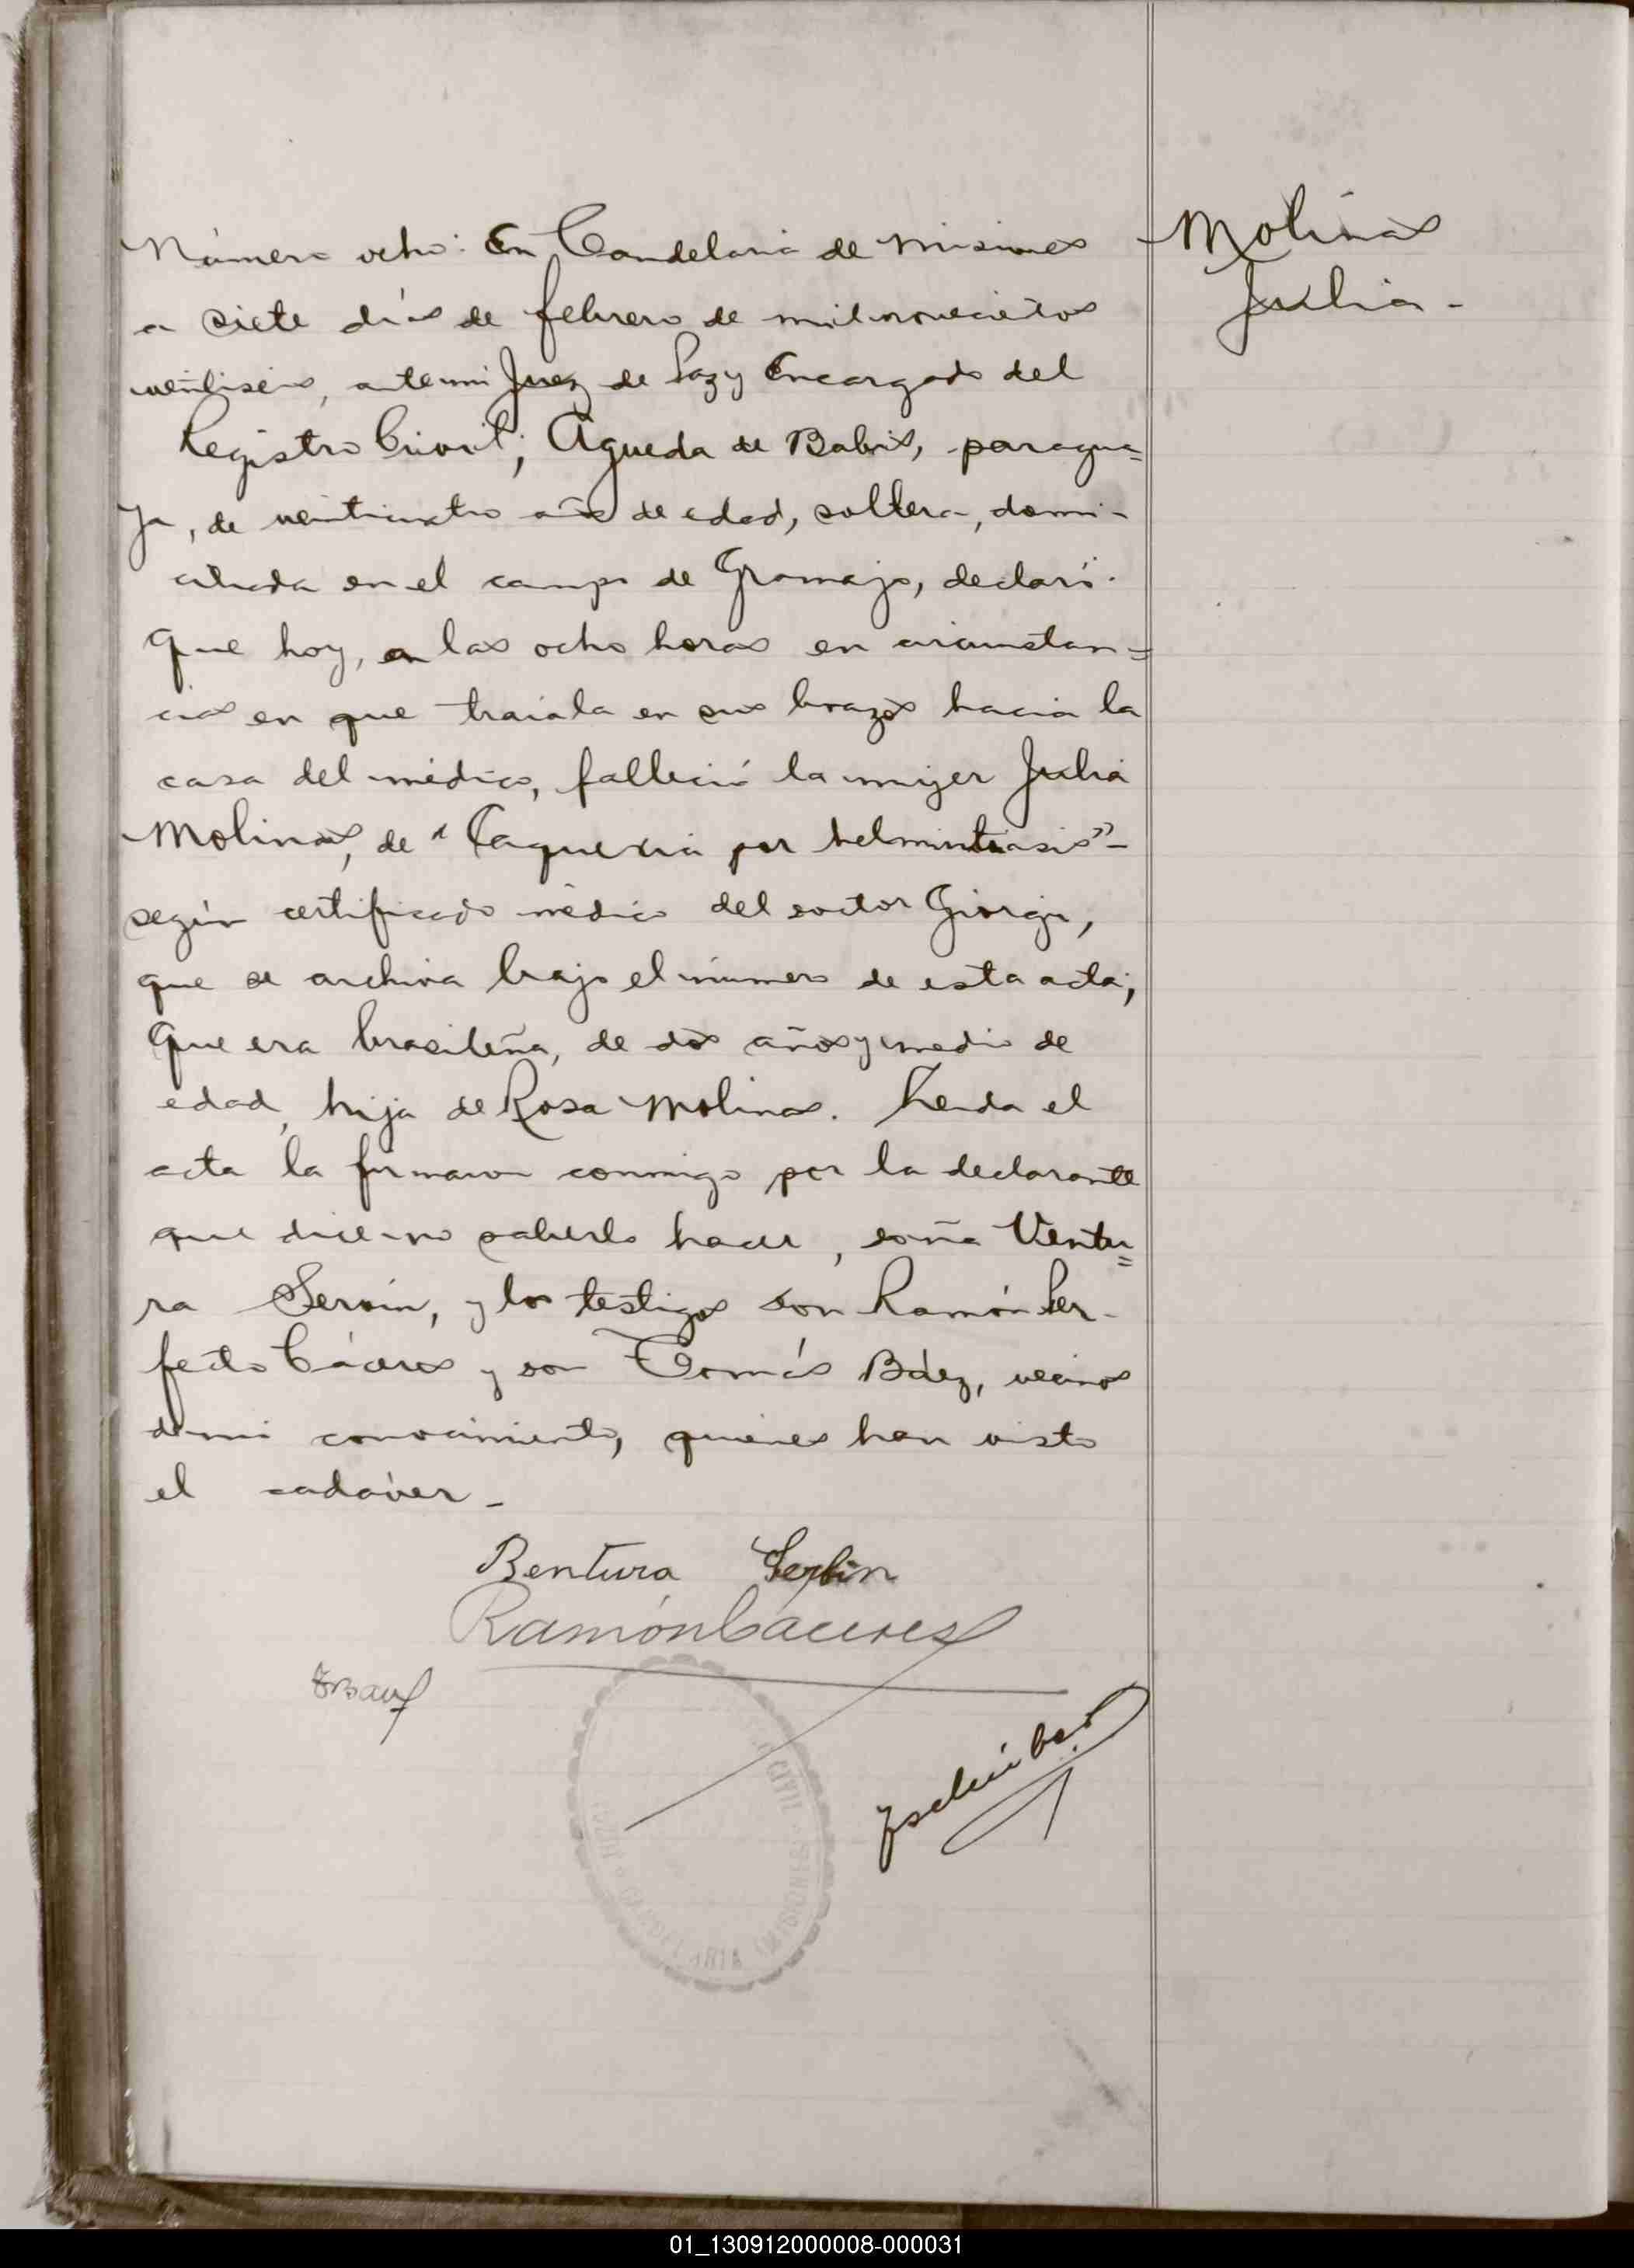 Molinas
Julia -
Número ocho: En Candelaria de Misiones
a siete días de febrero de mil novecientos
veintiseis, ante mi Juez de Paz y Encargado del
Registro Civil; Agueda de Babis, paragua=
ya, de veinticuatro años de edad, soltera, domi-
ciliada en el campo de Gramajo, declaró:
Que hoy, a las ocho horas en circunstan=
cias en que traíala en sus brazos hacia la
casa del médico, falleció la mujer Julia
Molinas, de "Caquexia por helmintiasis" -
según certificado médico del doctor Giorgi,
que se archiva bajo el número de esta acta;
Que era brasileña, de dos años y medio de
edad, hija de Rosa Molinas. Leída el
acta la firmaron conmigo por la declarante
que dice no saberlo hacer, doña Ventu=
ra Servín, y los testigos don Ramón Per-
fecto Cáceres y don Tomás Báez, vecinos
de mi conocimiento, quienes han visto
el cadáver -
Bentura Serbin
Ramón Caceres
TBaez
CIVIL
CANDELARIA (MISIONES)
01_130912000008-000031